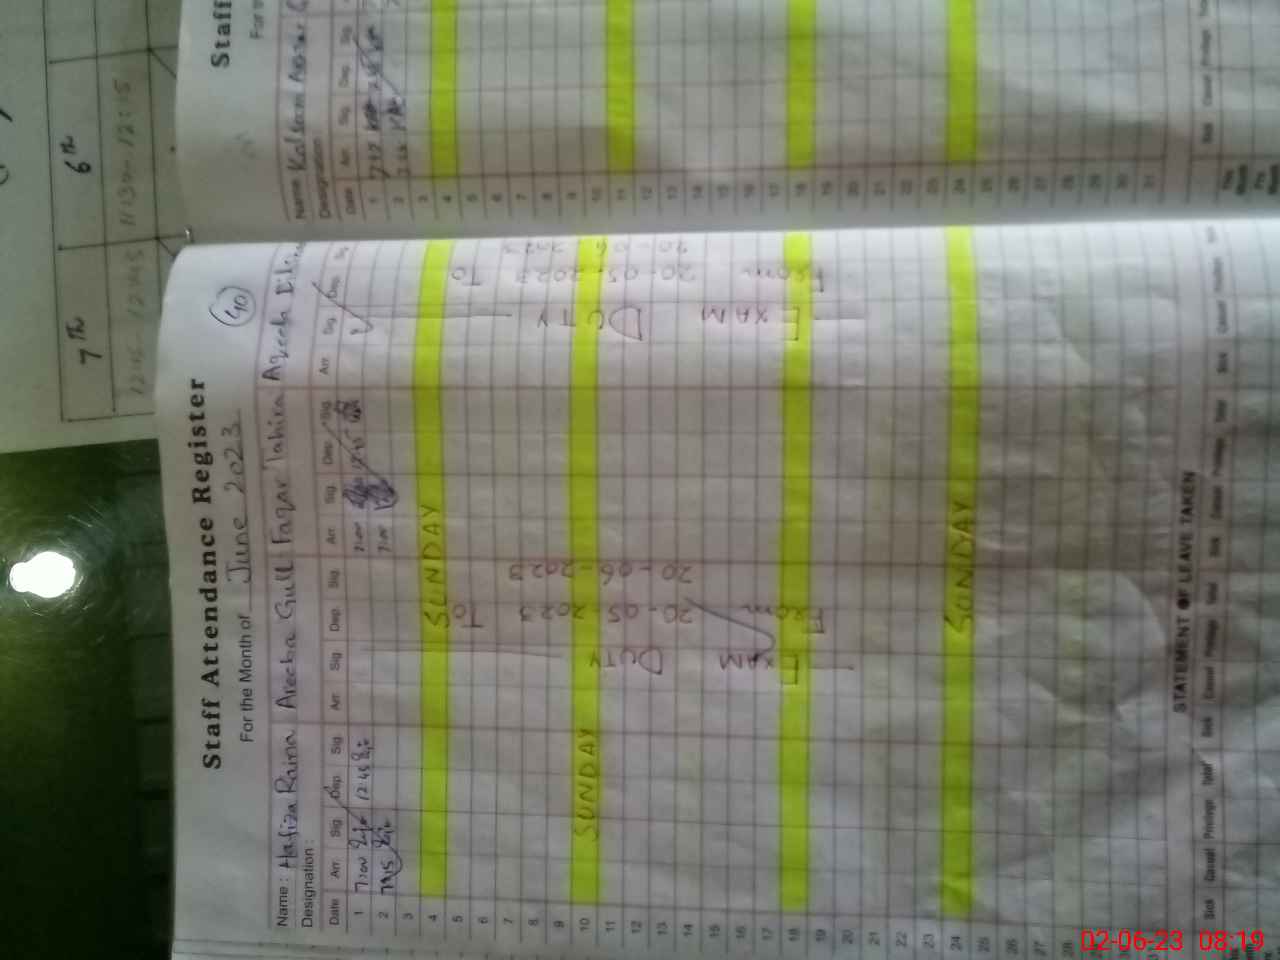 Staff Attendance Register
For the Month of June 2023
40
Name: Hafiza Raina Areeba Gull Fazar Tahira Aqeela
Designation:
Date Arr. Sig. Dep. Sig. Arr. Sig Dep. Sig. Arr. Sig. Dep. Sig. Arr. Sig. Dep. Sig.
1 7:00 12:45 7:00 12:45
2 7:15 7:00
3
4 SUNDAY
5
6
7
8
9
10 SUNDAY
11
12
13
14
15
16
17
18
19
20
21
22
23
24 SUNDAY
25
26
27
28
EXAM DUTY
From 20-05-2023 To
20-06-2023
EXAM DUTY
From 20-05-2023 To
20-06-2023
STATEMENT OF LEAVE TAKEN
Sick Casual Privilege Total Sick Casual Privilege Total Sick Casual Privilege Total Sick Casual
Staff
Name Kalsoom
Designation
Date Arr. Sig. Dep. Sig.
1
2
3
4
5
6
7
8
9
10
11
12
13
14
15
16
17
18
19
20
21
22
23
24
25
26
27
28
29
30
31
Sick Casual Privilege
7th 6th
12:15-12:45 11:30-12:15
02-06-23 08:19